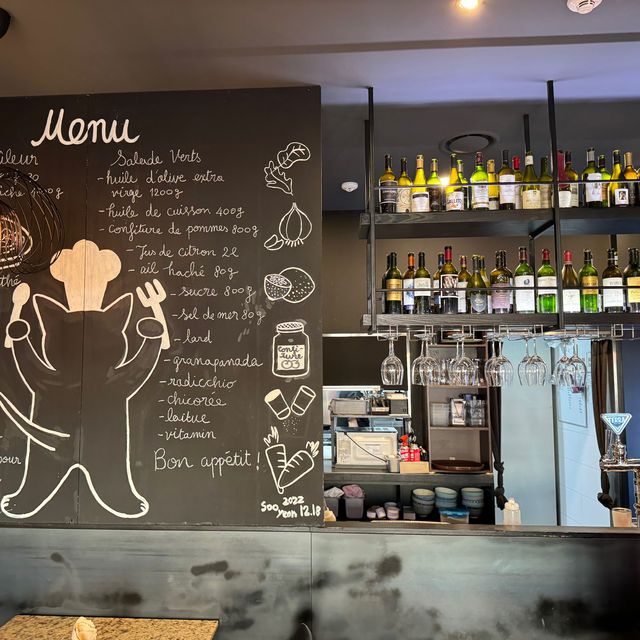 Menu
Salade Verts
-huile d'olive extra
virge 1200g
-huile de cuisson 400g
-confiture de pommes 800g
-Jus de citron 2L
-ail haché 80g
-sucre 800g
-sel de mer 80g
-lard
-granapanada
-radicchio
-chicorée
-laitue
-vitamin
Bon appétit!
confi
ture
2022
Soo yeon 12.18